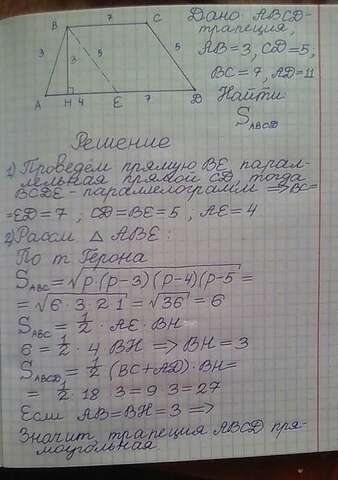 B 7 C
3 3 5 5
A H 4 E 7 D
Дано: ABCD-
трапеция,
AB=3, CD=5;
BC=7, AD=11
Найти:
S ABCD
Решение
1) Проведём прямую BE, парал-
лельная прямой CD, тогда
BCDE - параллелограмм => BC=
=ED=7, CD=BE=5, AE=4
2) Рассм △ ABE:
По т Герона
S ABC = √p(p-3)(p-4)(p-5 =
= √6·3·2 1 = √36 = 6
S ABC = 1/2 · AE · BH
6 = 1/2 · 4 BH => BH = 3
S ABCD = 1/2 (BC+AD)·BH=
= 1/2 18 3 = 9 3 = 27
Если AB=BH=3 =>
Значит трапеция ABCD пря-
моугольная